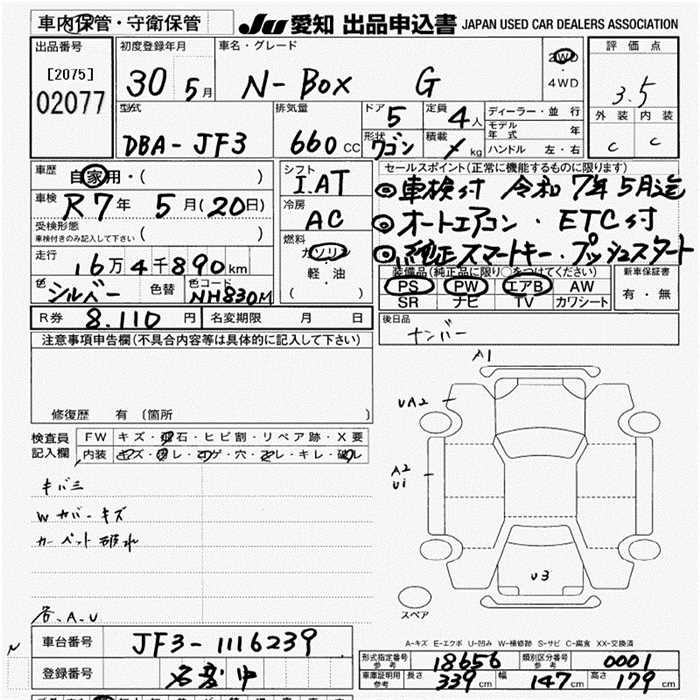 車内保管・守衛保管 JU 愛知 出品申込書 JAPAN USED CAR DEALERS ASSOCIATION
出品番号 初度登録年月 車名・グレード 2WD ・ 4WD 評価点
[2075]
02077 30 5月 N-BOX G 3.5
型式 排気量 ドア 5 定員 4人 ディーラー・並行 外装 内装
DBA-JF3 660 CC 形状 ワゴン 積載 kg モデル年式 年 C C
ハンドル 左・右
車歴 自家用・( ) シフト I.AT セールスポイント(正常に機能するものに限ります)
車検 R7年 5月(20日) 冷房 AC ◎車検付 令和7年5月迄
受検形態 車検付きのみ記入して下さい ( ) ◎オートエアコン・ETC付
走行 6万4千890km 燃料 ガソリン 軽・油 ( ) ◎純正スマートキー・プッシュスタート
色 シルバー 色替 色コード NH830M 装備品(純正品に限り○をつけてください) 新車保証書
PS PW エアB AW 有・無
SR ナビ TV カワシート
R券 8.110円 名変期限 月 日 後日品
ナンバー
注意事項申告欄(不具合内容等は具体的に記入して下さい)
修復歴 有 (箇所 )
検査員記入欄 FW キズ・飛石・ヒビ割・リペア跡・X要
内装 キズ・ヨゴレ・コゲ・穴・スレ・キレ・破レ
キバミ
W カバーキズ
カーペット破れ
各、A、U
A1
UA2
A2
U1
U3
スペア
A-キズ E-エクボ U-凹み W-補修跡 S-サビ C-腐食 XX-交換済
N
車台番号 JF3-1116239
登録番号 名変中
形式指定番号 参考 18656 類別区分番号 参考 0001
車庫証明用 参考 長さ 339cm 幅 147cm 高さ 179cm